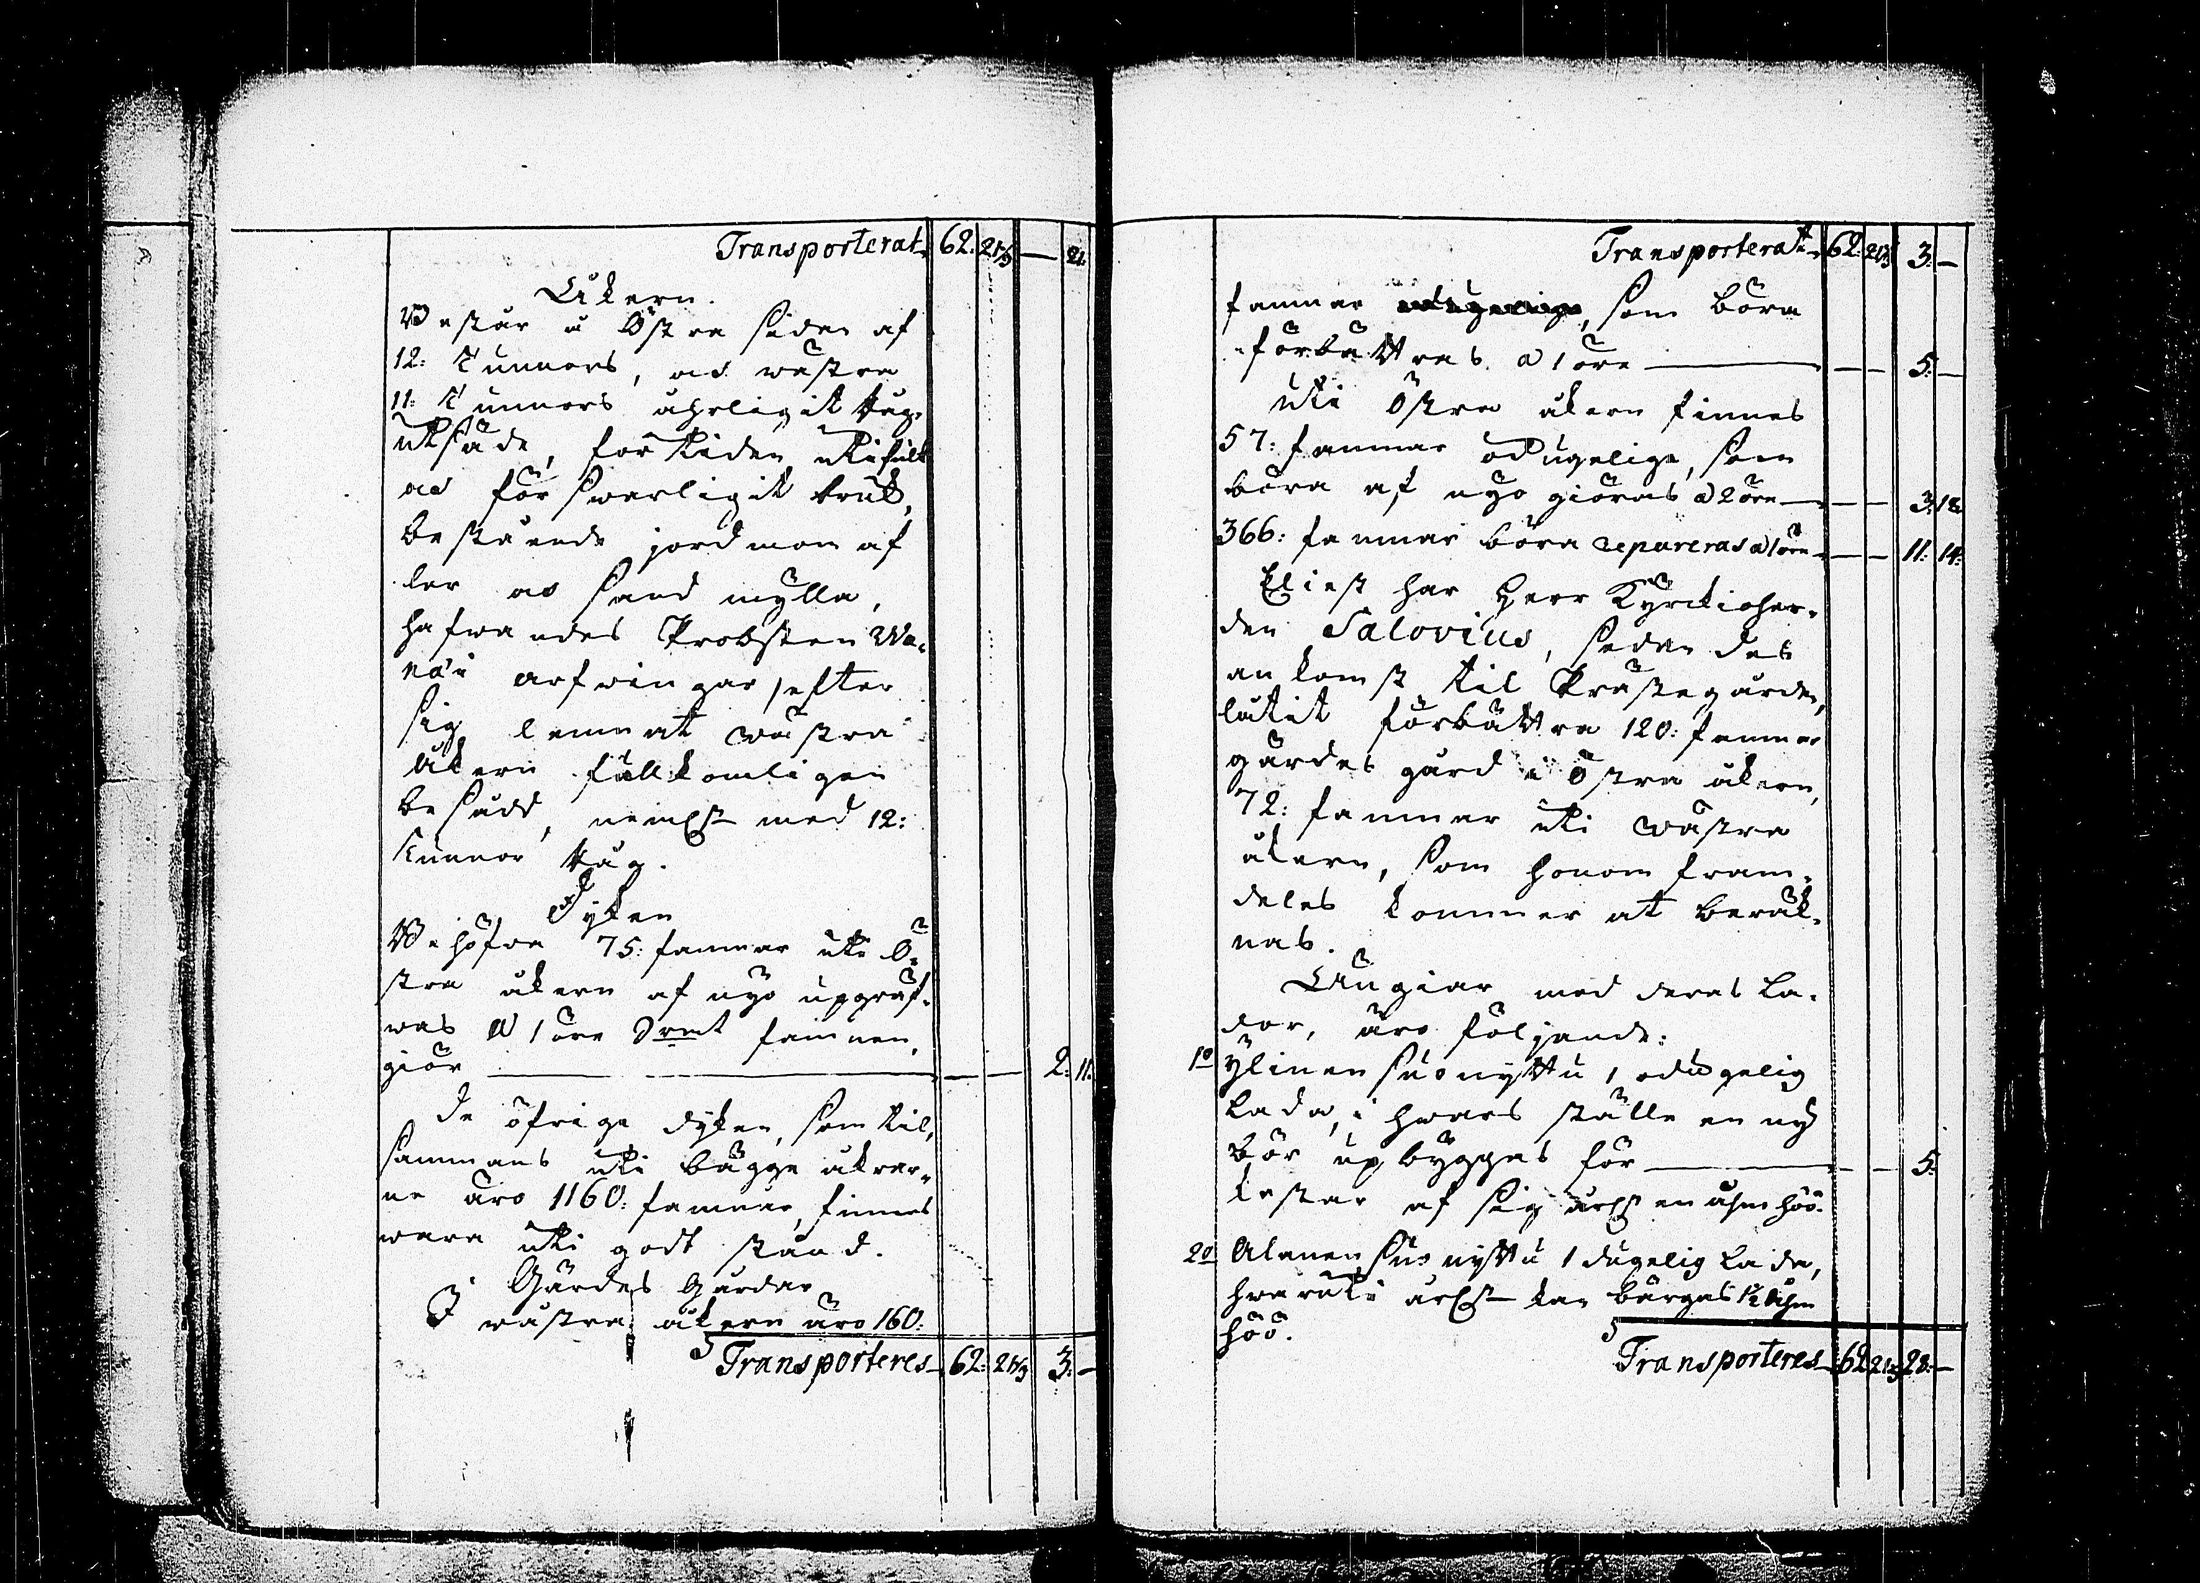 Transporterat 62: 21⅓ — 21.
Åkern.
Består å Östra sidan af
12: Tunnors, och wästra
11: Tunnors åhrligit Råg
utsäde, för tiden uti fult
och förswarligit bruk,
bestående jordmon af
ler och sand mylla,
hafwandes Probsten Wa-
arfwingar, efter
sig lemnat wästra
åkern fullkomligen
besådd, nembl. med 12:
tunnor Råg.
Dyken
Behöfwa 75: famnar uti Ö-
stra åkern af nyo upgräf-
was a 1 öre Srmt famnen,
giör — — — 2: 11.
De öfrige dyken, som til-
sammans uti bägge åkrar-
ne äro 1160: famnar, finnes
wara uti godt stånd.
Gärdes Gårdar
I wästra åkern äro 160:
Transporteres 62: 21⅓ 3: —
Transporterat 62: 21⅓ 3: —
famnar, som böra
förbättras a 1 öre — — 5: —
Uti Östra åkern finnes
57: famnar odugelige, som
böra af nyo giöras a 2 öre — — 3: 18
366: famnar böra repareras a 1 öre — — 11: 14:
Eliest har Herr Kyrckioher-
den Salovius, sedan des
ankomst til Prästegården,
låtit förbättra 120: famnar
gärdes gård i Östra åkern,
72: famnar uti wästra
åkern, som honom fram-
deles kommer at beräk-
nas.
Ängiar med deras La-
dor, äro följande:
1o Ylinen suo nyttu 1 odugelig
Lada, i hwars ställe en ny
bör upbyggas för — — 5:
kastar af sig årl. en åhm höö.
2o Alanen suo nyttu 1 dugelig Lada,
hwaruti årl. kan bärgas 1½ åhm
höö.
Transporteres 62: 21⅓ 28: —